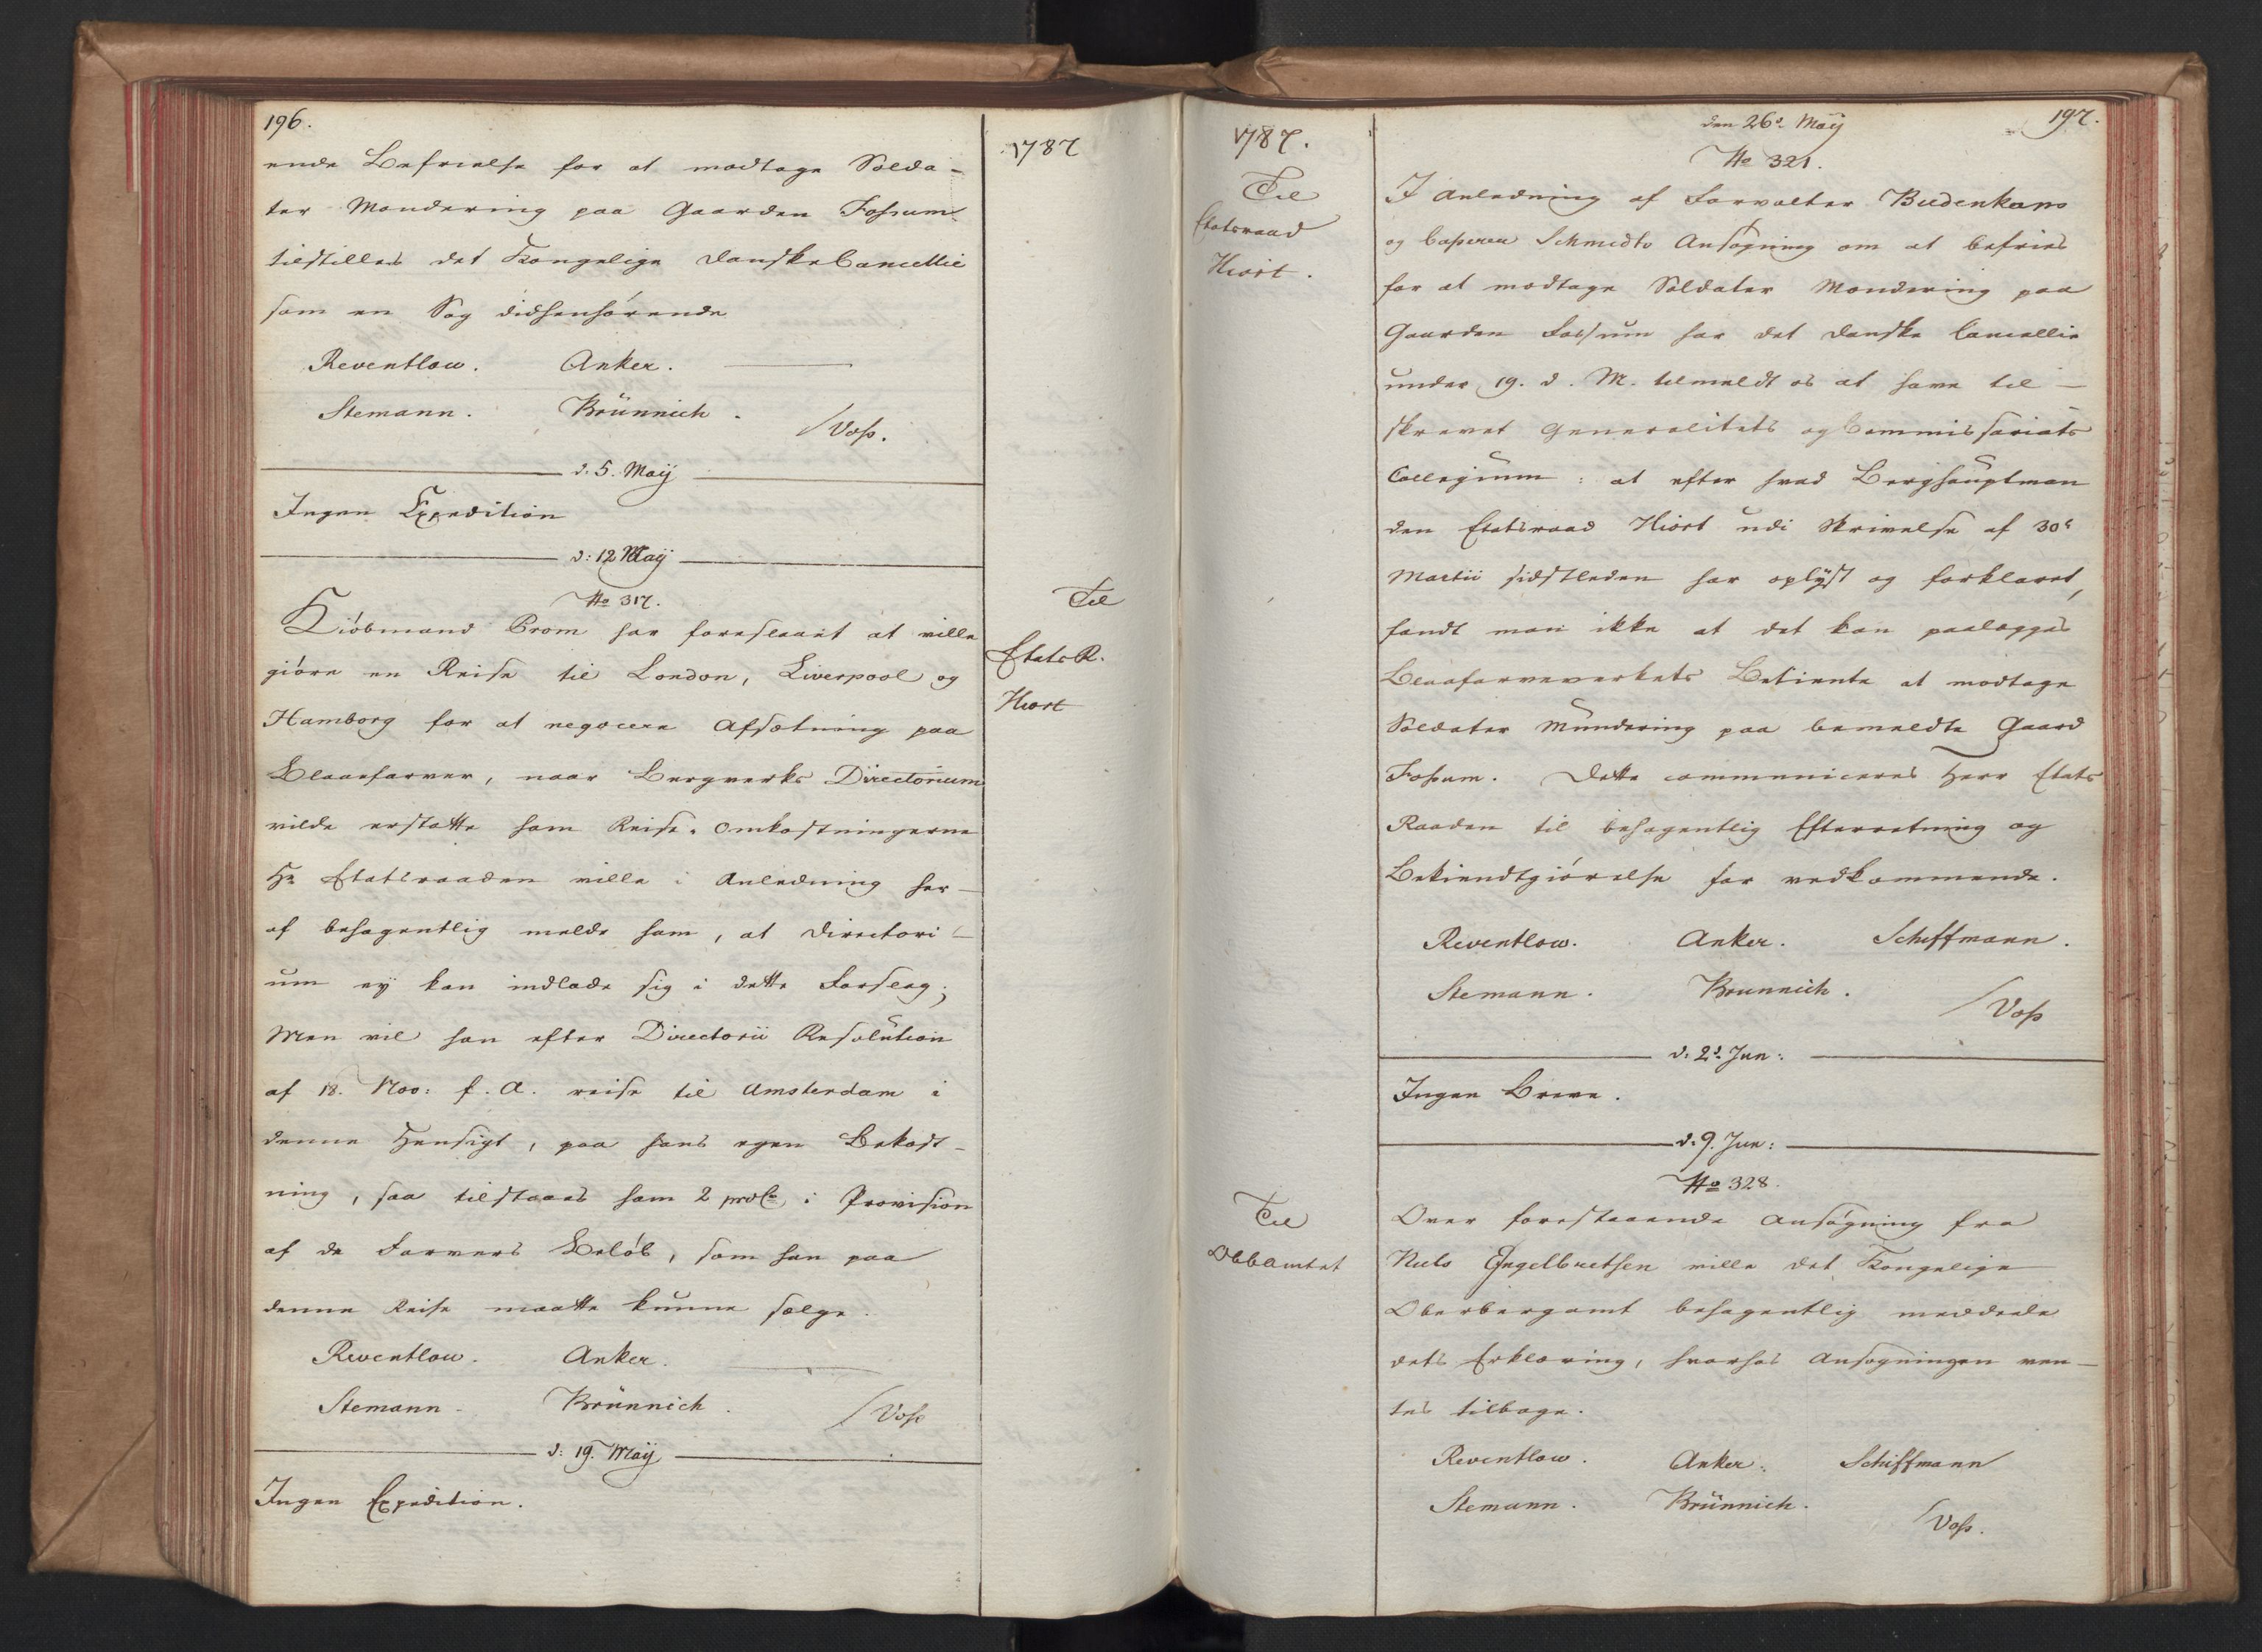 196.
1787
ende Befrielse for at modtage Solda-
ter Mondering paa Gaarden Fossum
tilstilles det Kongelige Danske Cancellie
som en Sag didhenhörende
Reventlow. Anker.
Stemann. Brünnich.
/Voss.
d. 5. Maÿ
Ingen Expedition
d: 12 Maÿ
No 317.
Til
Etats R.
Hiort
Kiöbmand Brom har foreslaaet at ville
giöre en Reise til London, Liverpool og
Hamborg for at negocere Afsætning paa
Blaaefarver, naar Bergverks Directorium
vilde erstatte ham Reise-Omkostningerne
Hr Etatsraaden ville i Anledning her-
af behagentlig melde ham, at Directori-
um eÿ kan indlade sig i dette Forslag;
Men vil han efter Directorii Resolution
af 18. Nov: f. A. reise til Amsterdam i
denne Hensigt, paa hans egen Bekost-
ning, saa tilstaaes ham 2 proCt i Provision
af de Farvers Belöb, som han paa
denne Reise maatte kunne sælge.
Reventlow. Anker.
Stemann. Brünnich.
/Voss
d: 19. Maÿ
Ingen Expedition.
197.
1787.
den 26d Maÿ
No 321.
Til
Etatsraad
Hiort.
I Anledning af Forvalter Büdenkans
og Casserer Schmidts Ansögning om at befries
for at modtage Soldater Mondering paa
Gaarden Fossum har det danske Cancellie
under 19. d. M. tilmeldt os at have til-
skrevet Generalitets og Commissariats
Collegium: at efter hvad Berghauptman
den Etatsraad Hiort udi Skrivelse af 30t
Martii sidstleden har oplÿst og forklaret,
fandt man ikke at det kan paalægges
Blaafarveverkets Betiente at modtage
Soldater Mundering paa bemeldte Gaard
Fossum. Dette communiceres Herr Etats
Raaden til behagentlig Efterretning og
Bekiendtgiörelse for vedkommende.
Reventlow. Anker. Schiffmann.
Stemann. Brunnich.
/Voss
d. 2d Jun:
Ingen Breve.
d. 9. Jun:
No 328.
Til
ObbAmtet
Over forestaaende Ansögning fra
Niels Engelbretsen ville det Kongelige
Oberbergamt behagentlig meddeele
dets Erklæring, hvorhos Ansøgningen ven-
tes tilbage.
Reventlow. Anker. Schiffmann
Stemann. Brünnich.
/Voss.